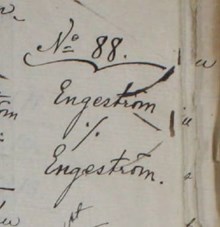 Nº 88.
Engeström
./.
Engeström.